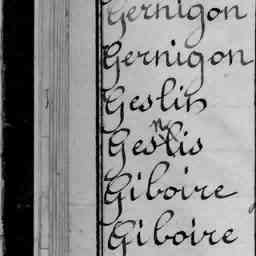 Gernigon
Gernigon
Geslin
Geslis
Giboire
Giboire